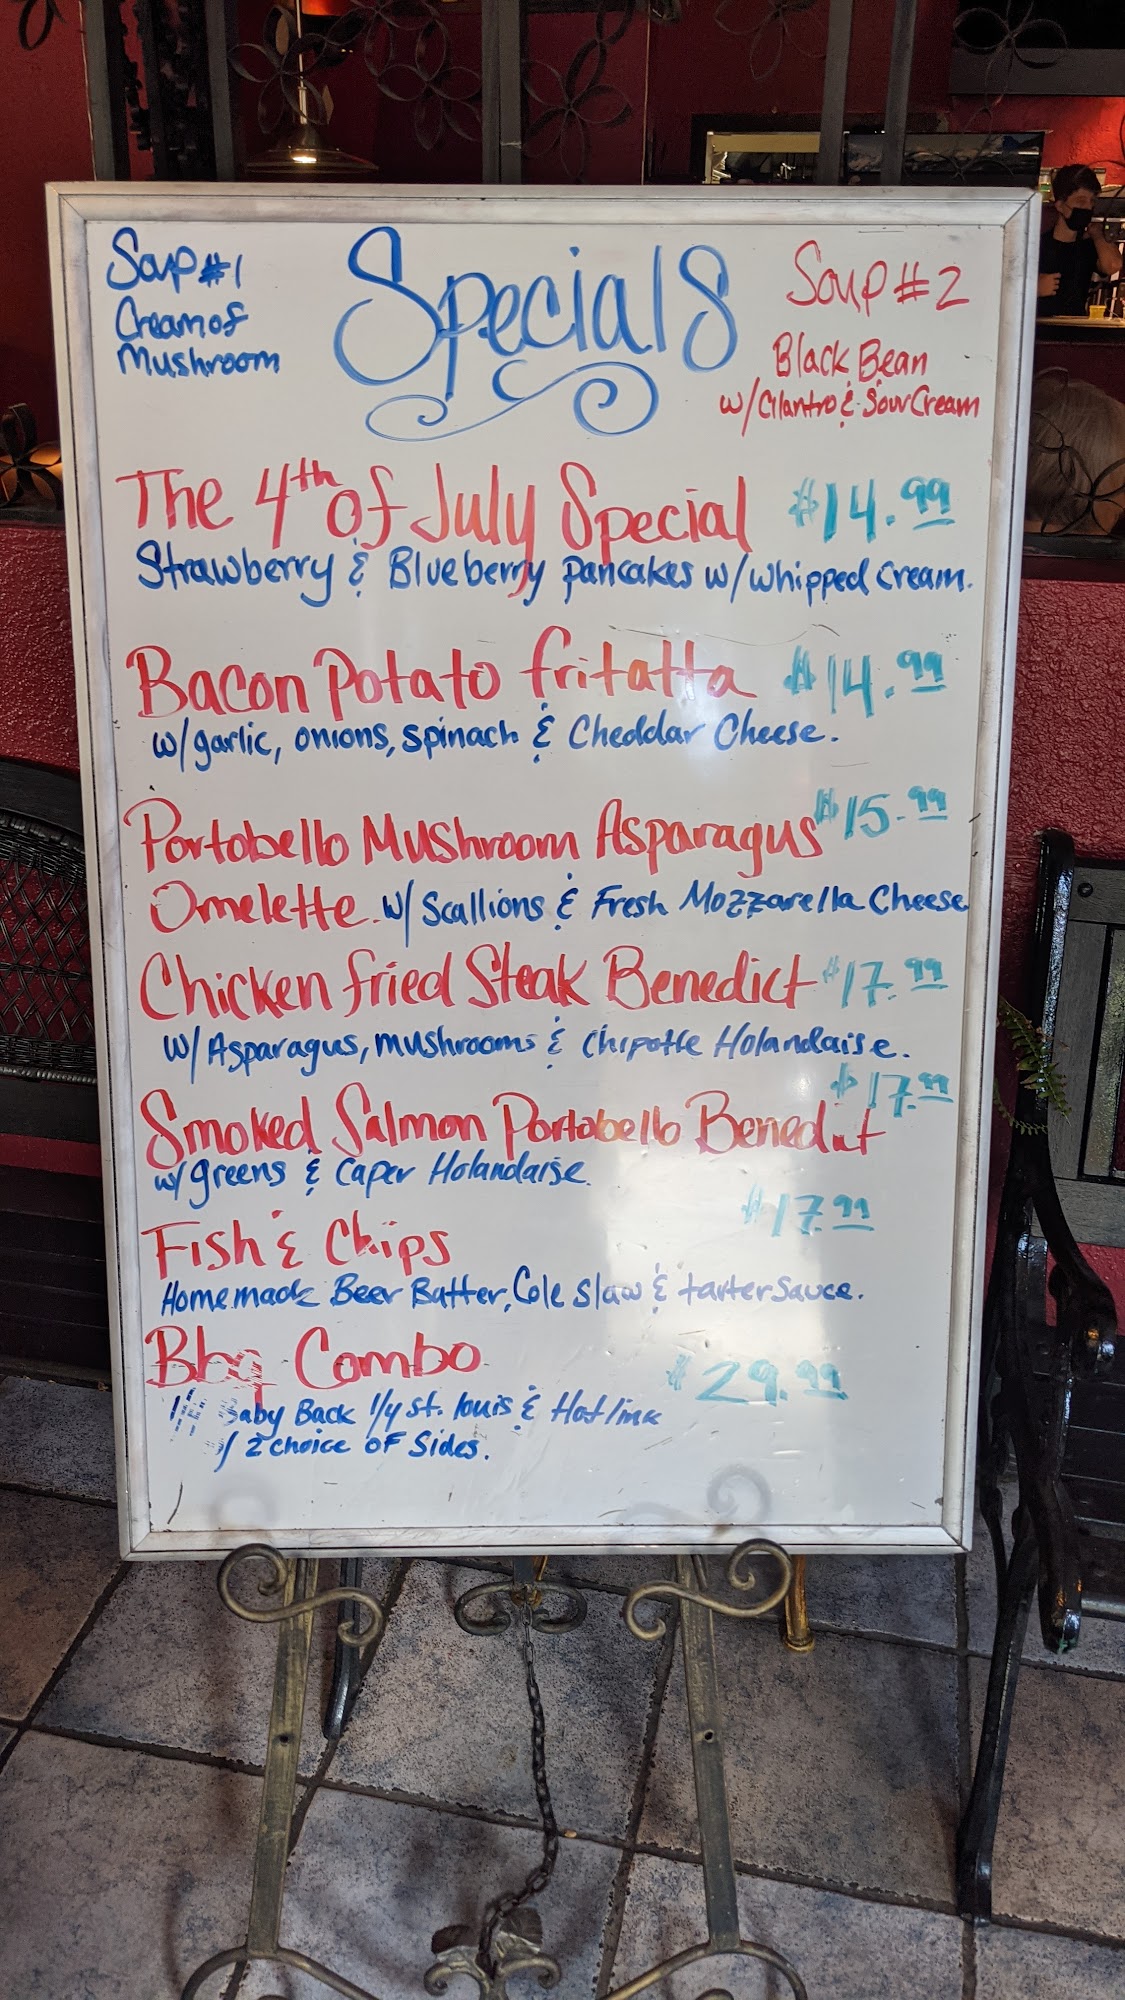 Soup #1
Cream of
Mushroom
Specials
Soup #2
Black Bean
w/Cilantro & Sour Cream
The 4th of July Special $14.99
Strawberry & Blueberry pancakes w/whipped cream.
Bacon Potato fritatta $14.99
w/garlic, onions, spinach & Cheddar Cheese.
Portobello Mushroom Asparagus $15.99
Omelette. w/ Scallions & Fresh Mozzarella Cheese
Chicken fried Steak Benedict $17.99
w/ Asparagus, mushrooms & chipotle Holandaise.
$17.99
Smoked Salmon Portobello Benedict
w/ greens & Caper Holandaise.
$17.99
Fish & Chips
Homemade Beer Batter, Cole Slaw & tarter Sauce.
Bbq Combo $29.99
Back 1/4 st. louis & Hotlink
/ 2 choice of Sides.